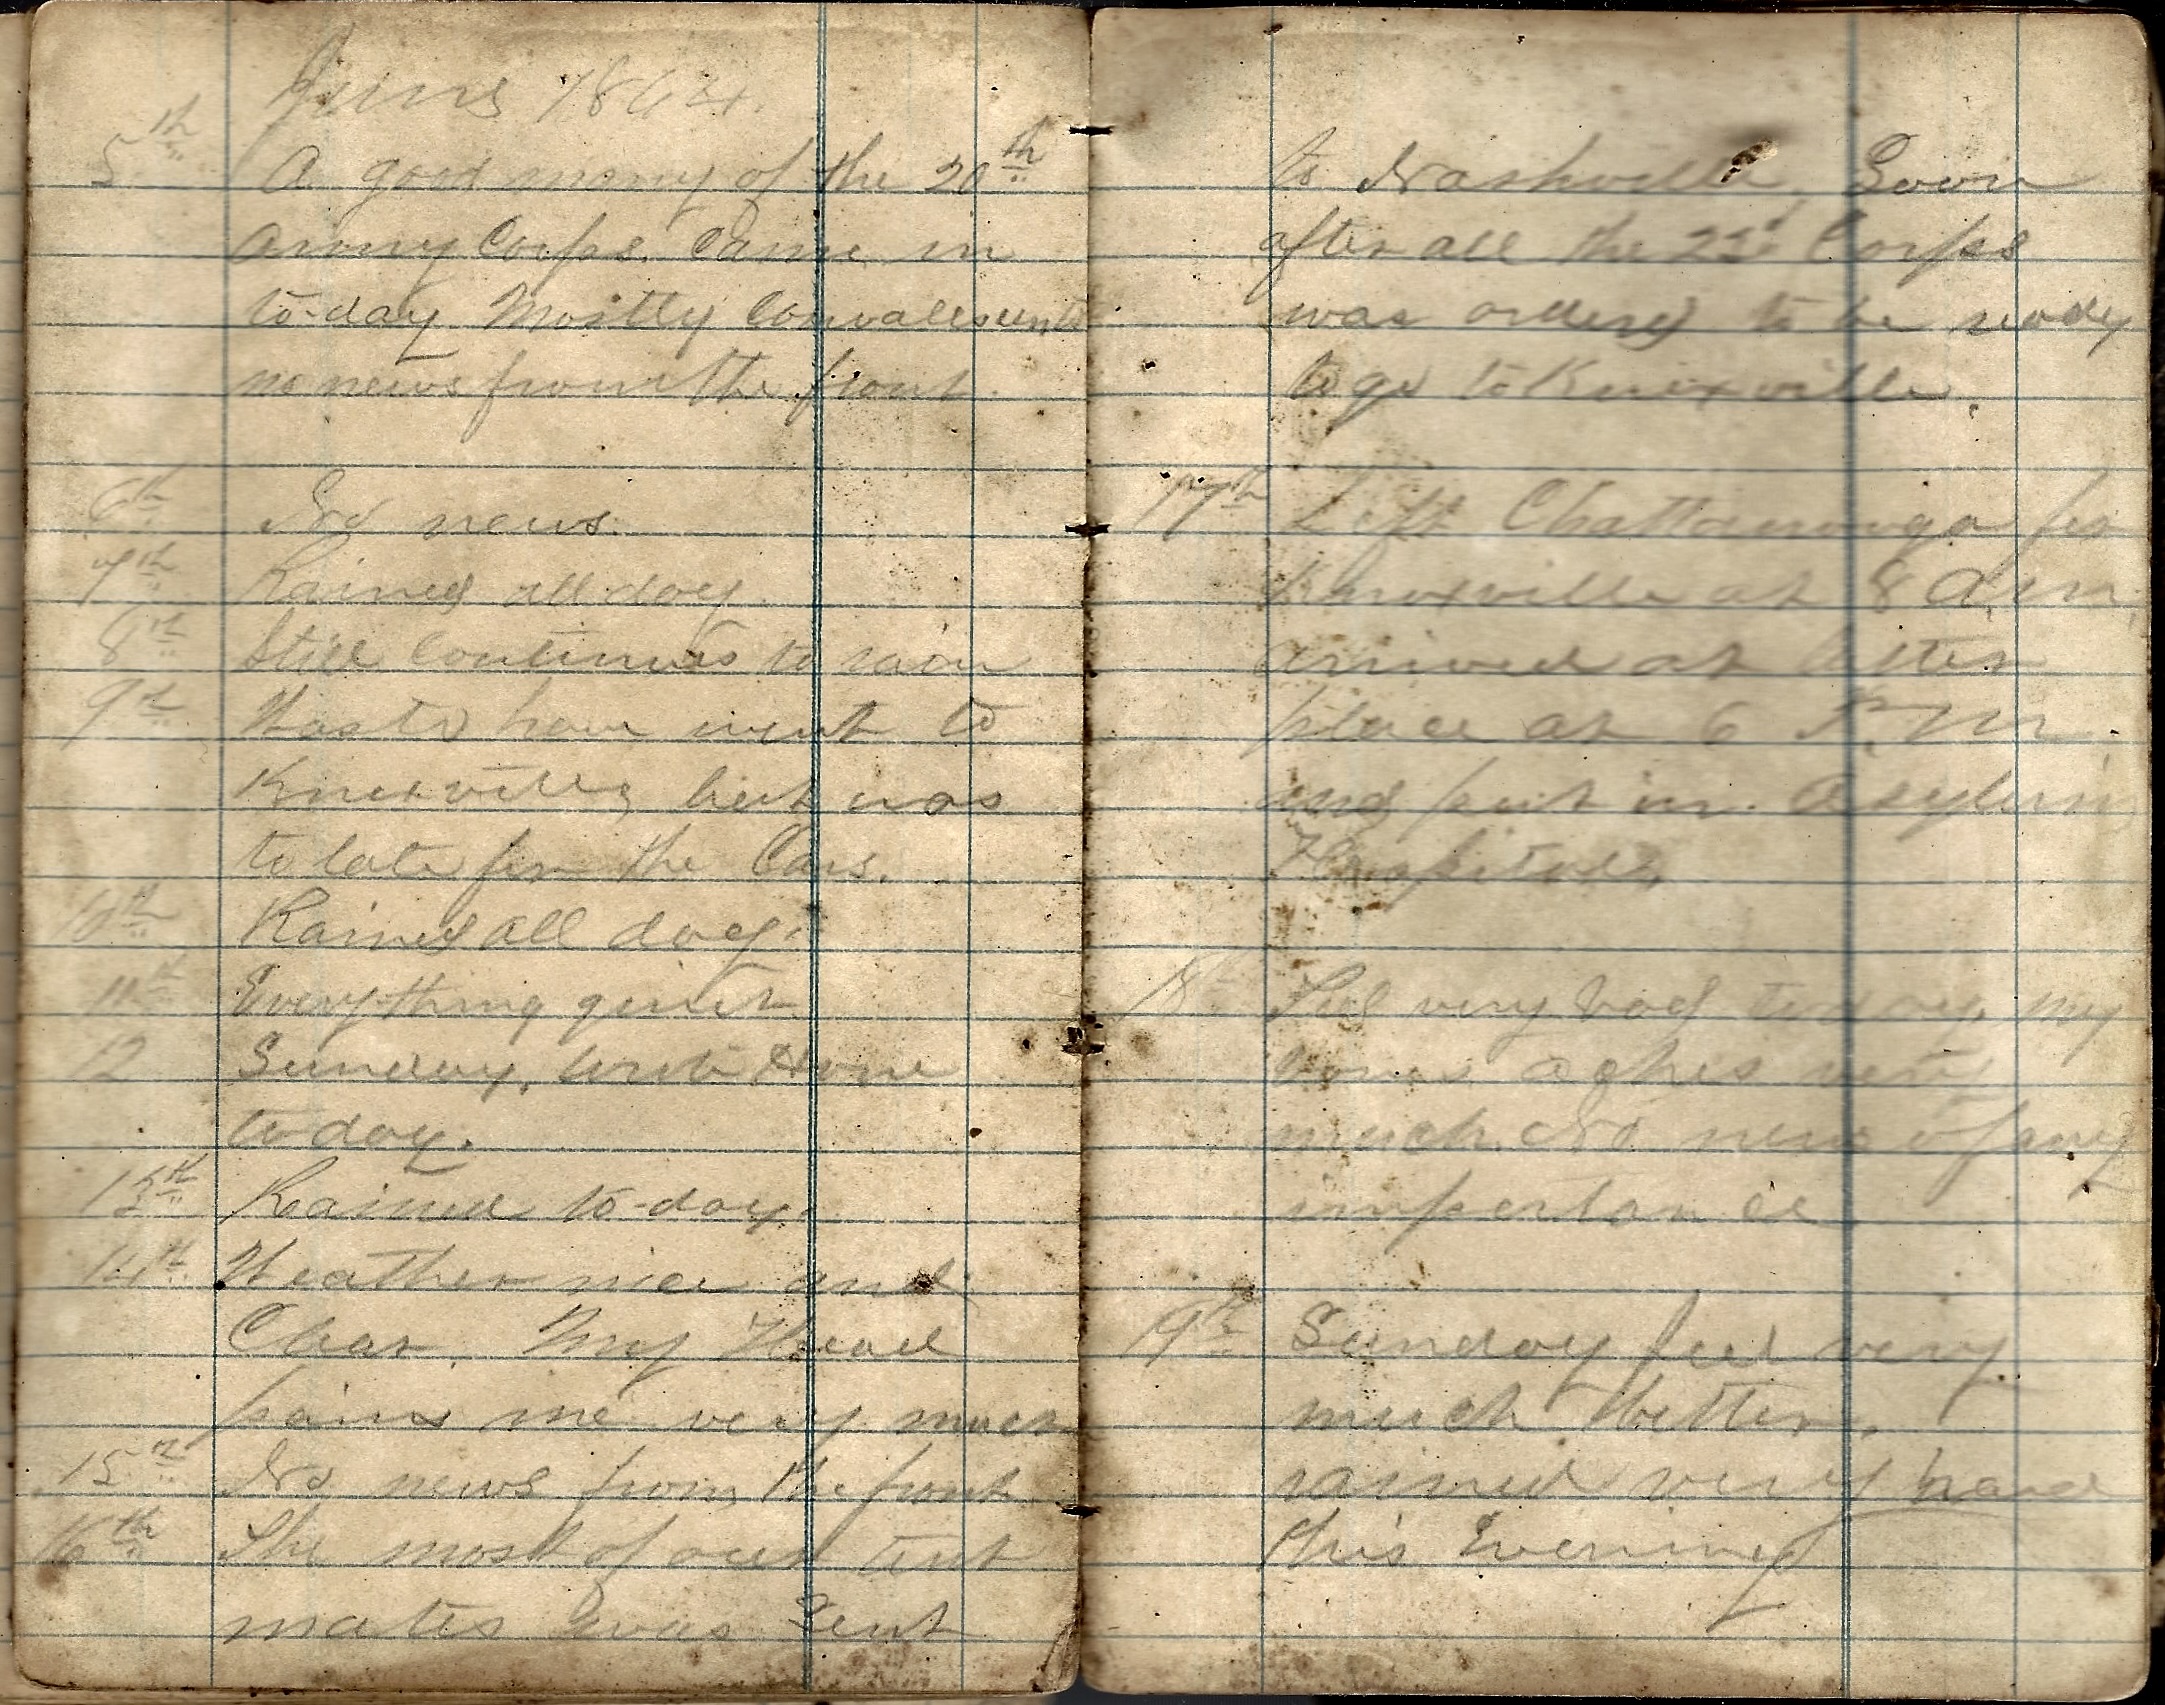 June 1864.
5th A good many of the 20th
Army Corps. Came in
to-day. Mostly Convalesents
no news from the front.
6th No news.
7th Rained all day.
8th Still Continues to rain
9th Was to have went to
Knoxville, but was
to late for the Cars.
10th Rained all day.
11th Everything quiet.
12 Sunday, wrote Home
to day.
13th Rained to-day.
14th Weather nice and
Clear. My Head
pains me very much
15th No news from the front
16th The most of our tent
mates was sent
to Nashville Soon
after all the 23d Corps
was ordered to be ready
to go to Knoxville.
17th Left Chattanooga for
Knoxville at 8 A.M.
arrived at latter
place at 6 P.M.
and put in Asylum
Hospital,
18th Feel very bad today, my
bones aches very
much. No news of any
importance
19th Sunday feel very
much better.
rained very hard
this Evening